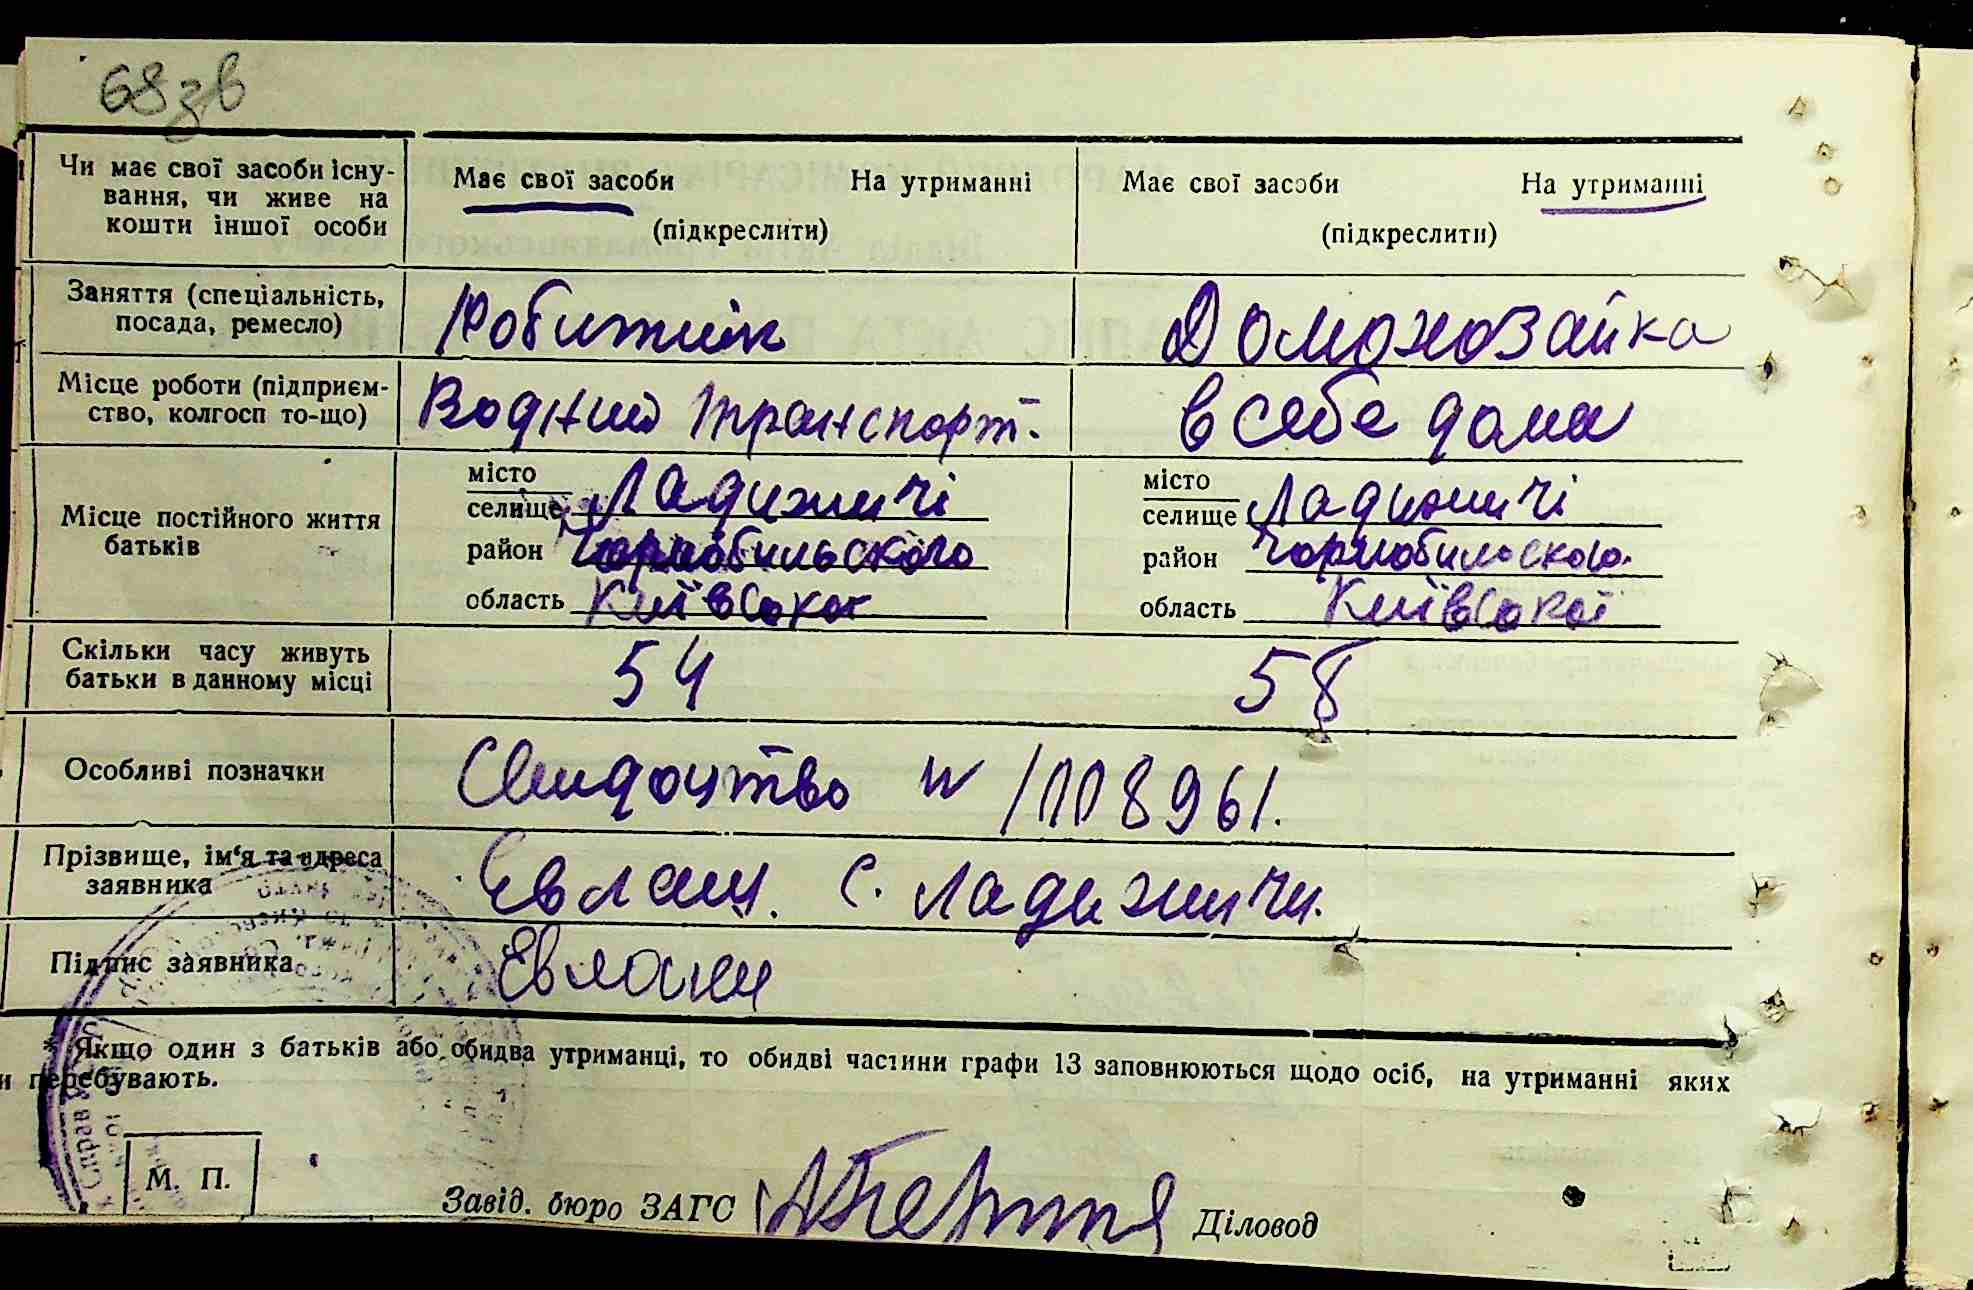 68зв
Чи має свої засоби існу-
вання, чи живе на
кошти іншої особи
Має свої засоби На утриманні
(підкреслити)
Має свої засоби На утриманні
(підкреслити)
Заняття (спеціальність,
посада, ремесло)
Робитник
Домохозайка
Місце роботи (підприєм-
ство, колгосп то-що)
Водний транспорт.
в себе дома
Місце постійного життя
батьків
місто
селище Ладижичі
район Чорнобильского
область Київської
місто
селище Ладижичі
район Чорнобильского
область Київської
Скільки часу живуть
батьки в данному місці
54
58
Особливі позначки
Свидоцтво N
Прізвище, ім'я та адреса
заявника
Евлаш. с. Ладижичи.
Підпис заявника
Евлаш
* Якщо один з батьків або обидва утриманці, то обидві частини графи 13 заповнюються щодо осіб, на утриманні яких
и перебувають.
М. П.
Завід. бюро ЗАГС
Діловод